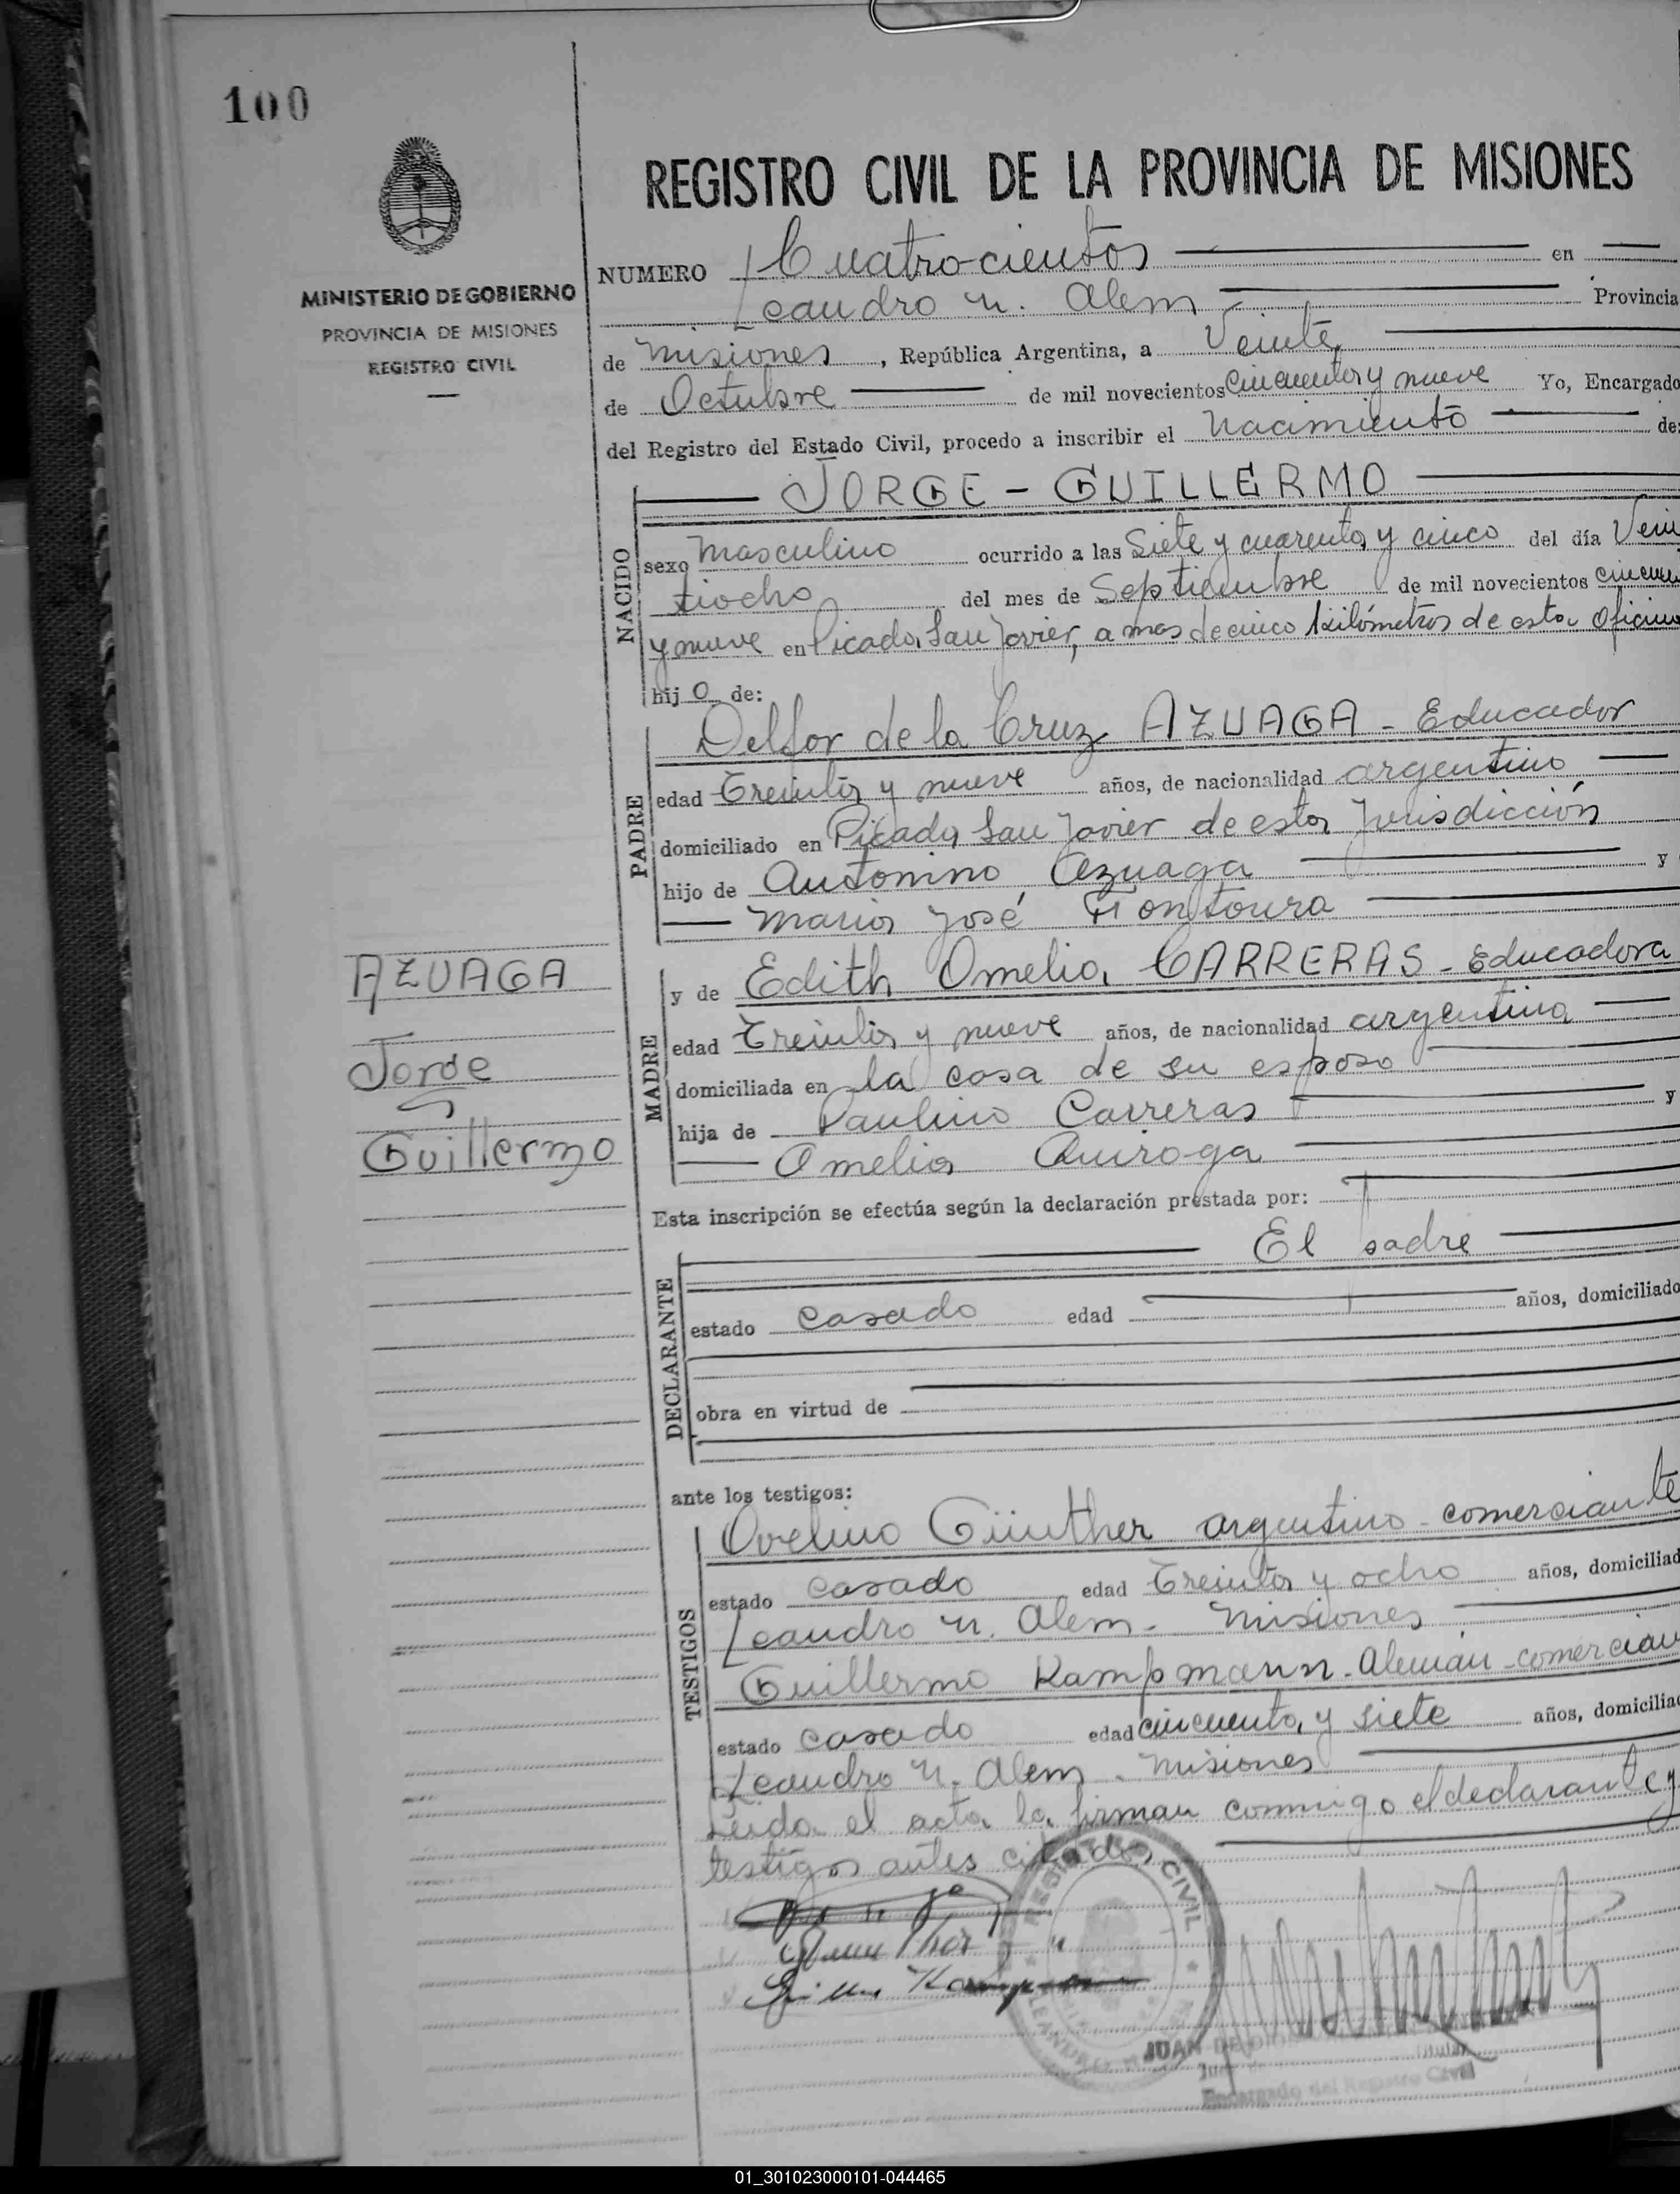 100
MINISTERIO DE GOBIERNO
PROVINCIA DE MISIONES
REGISTRO CIVIL
REGISTRO CIVIL DE LA PROVINCIA DE MISIONES
NUMERO Cuatrocientos en
Leandro N. Alem Provincia
de Misiones, República Argentina, a Veinte
de Octubre de mil novecientos cincuenta y nueve Yo, Encargado
del Registro del Estado Civil, procedo a inscribir el Nacimiento de:
NACIDO
JORGE - GUILLERMO
sexo masculino ocurrido a las Siete y cuarenta y cinco del día Vein
tiocho del mes de Septiembre de mil novecientos cincuen
y nueve en Picada San Javier, a mas de cinco kilómetros de esta Oficina
hijo de:
PADRE
Delfor de la Cruz AZUAGA - Educador
edad Treinta y nueve años, de nacionalidad argentino
domiciliado en Picada San Javier de esta Jurisdicción
hijo de Antonino Azuaga y
Maria José Fontoura
AZUAGA
Jorge
Guillermo
MADRE
y de Edith Amelia CARRERAS - Educadora
edad Treinta y nueve años, de nacionalidad argentina
domiciliada en la casa de su esposo
hija de Paulino Carreras y
Amelia Quiroga
Esta inscripción se efectúa según la declaración prestada por:
DECLARANTE
El padre
estado casado edad años, domiciliado
obra en virtud de
ante los testigos:
TESTIGOS
Ovelino Günther argentino - comerciante
estado casado edad Treinta y ocho años, domiciliad
Leandro N. Alem - Misiones
Guillermo Kampmann - Alemán - comercian
estado casado edad cincuenta y siete años, domiciliad
Leandro N. Alem - Misiones
Leida el acta la firman conmigo el declarante y
testigos antes citados
REGISTRO CIVIL
LEANDRO N.
JUAN DE
Encargado del Registro Civil
01_301023000101-044465